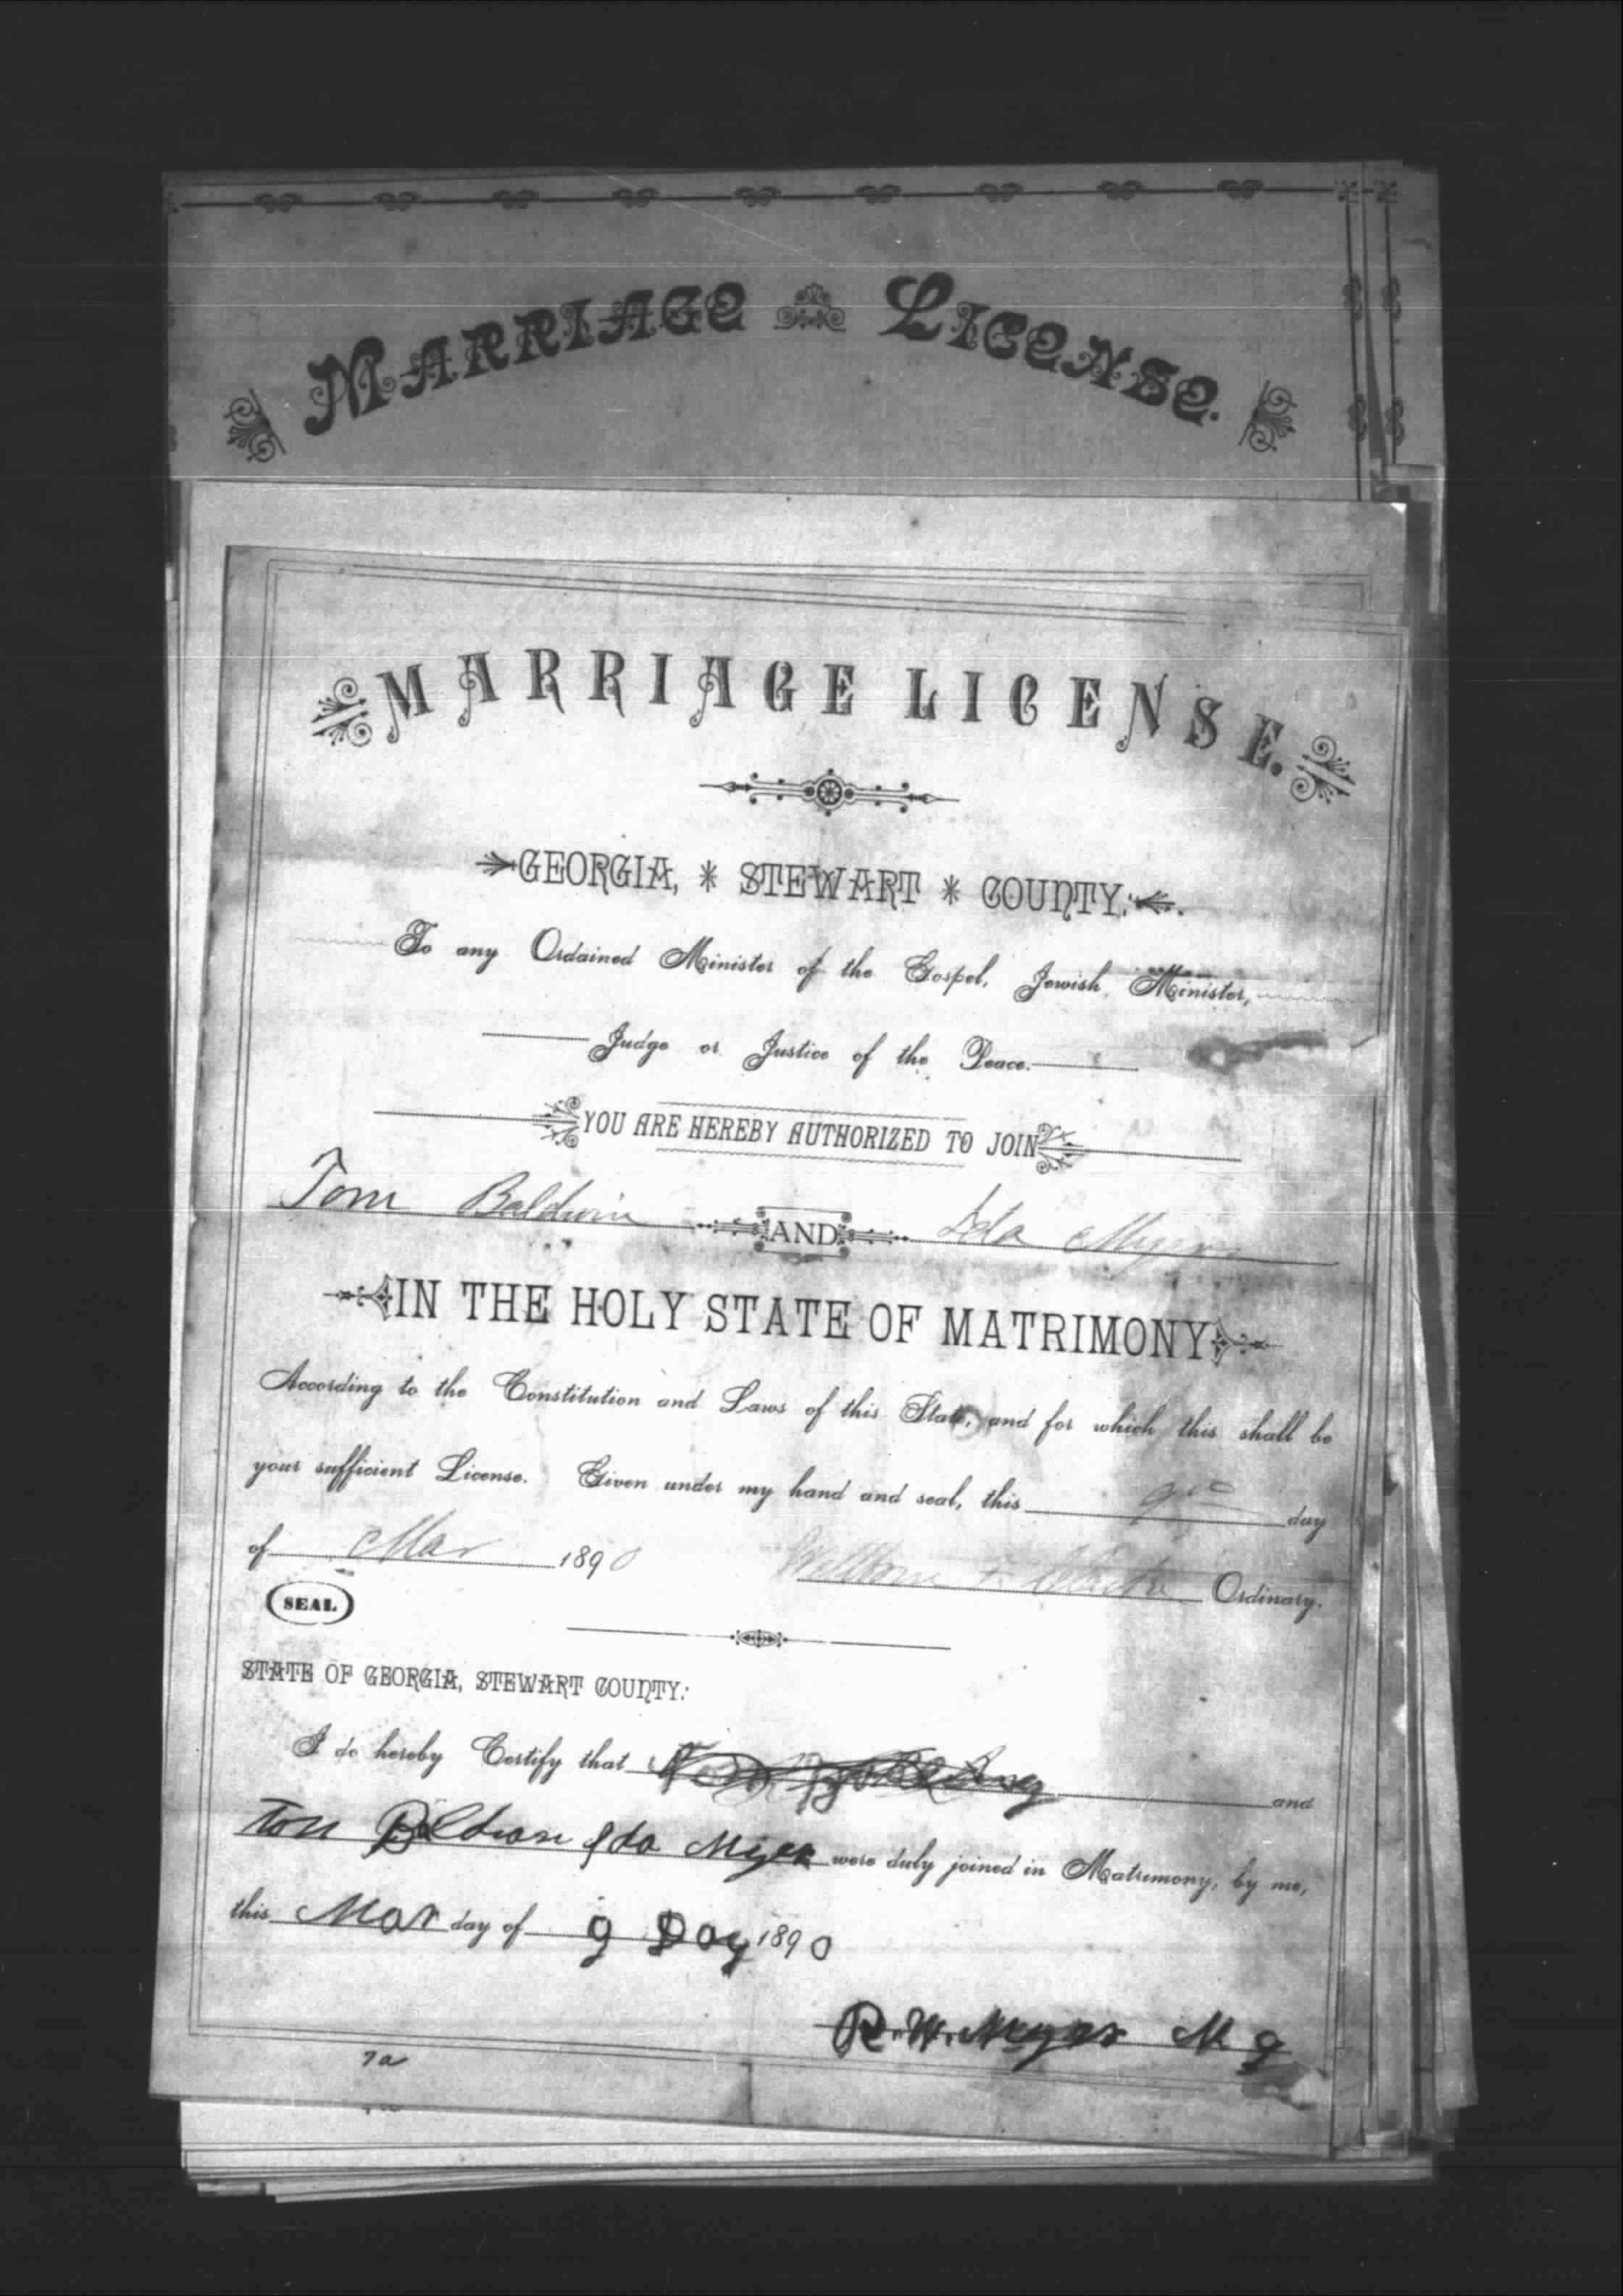 MARRIAGE LICENSE.
MARRIAGE LICENSE.
GEORGIA, * STEWART * COUNTY.
To any Ordained Minister of the Gospel, Jewish Minister,
Judge or Justice of the Peace.
YOU ARE HEREBY AUTHORIZED TO JOIN
Tom Baldwin AND Ida Myers
IN THE HOLY STATE OF MATRIMONY
According to the Constitution and Laws of this State, and for which this shall be
your sufficient License. Given under my hand and seal, this 9th day
of Mar 1890 Ordinary.
SEAL
STATE OF GEORGIA, STEWART COUNTY:
I do hereby Certify that and
Ida Myer were duly joined in Matrimony, by me,
this Mar day of 9 Day 1890
R. W. Myers M g
7a